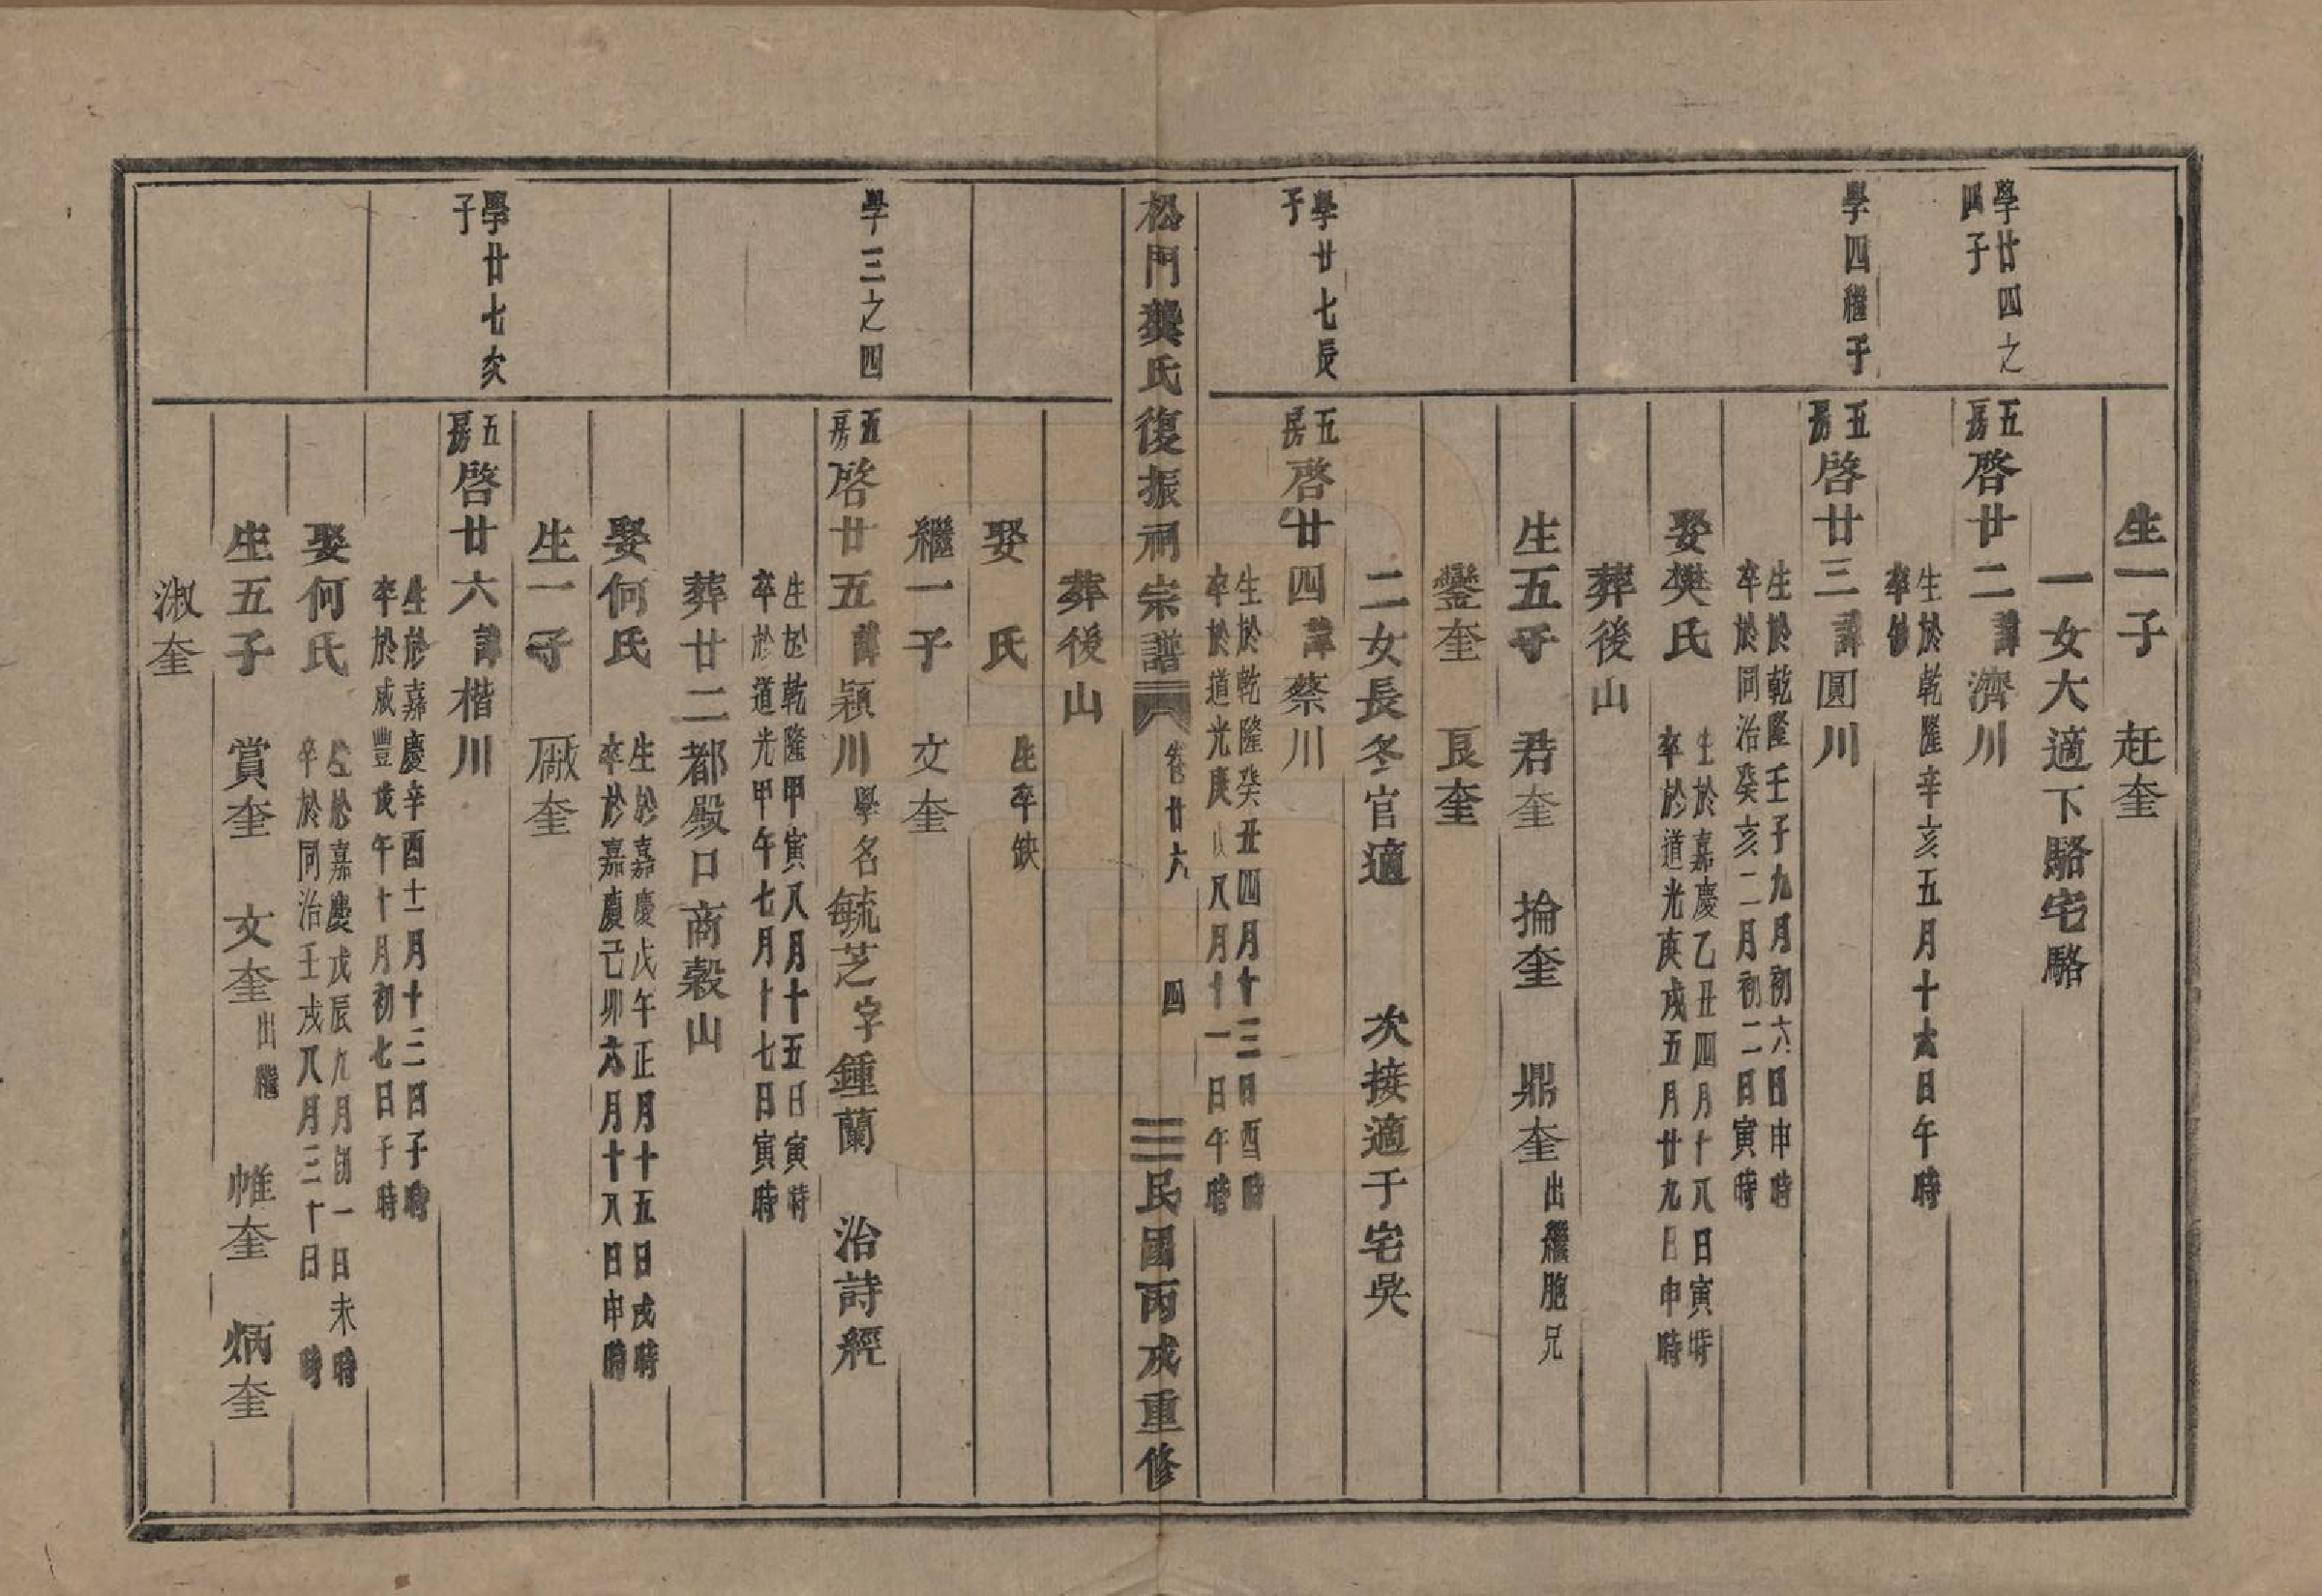 生一子　赶奎
一女大適下駱宅駱
學廿四之
四子
五
房
啓廿二諱濟川
生於乾隆辛亥五月十六日午時
卒缺
學四繼子
五
房
啓廿三諱圓川
生於乾隆壬子九月初六日申時
卒於同治癸亥二月初二日寅時
娶樊氏
生於嘉慶乙丑四月十八日寅時
卒於道光庚戌五月廿九日申時
葬後山
生五子　君奎　掄奎　鼎奎出繼胞兄
鑾奎　艮奎
二女長冬官適　次接適于宅吳
學廿七長
子
五
房
啓廿四諱蔡川
生於乾隆癸丑四月十三日酉時
卒於道光庚　八月十一日午時
松門龔氏復振祠宗譜　卷廿六　四　民國丙戌重修
葬後山
娶　氏　生卒缺
繼一子　文奎
學三之四
五
房
啓廿五諱穎川學名毓芝字鍾蘭　治詩經
生於乾隆甲寅八月十五日寅時
卒於道光甲午七月十七日寅時
葬廿二都殿口商穀山
娶何氏
生於嘉慶戊午正月十五日戌時
卒於嘉慶己卯六月十八日申時
生一子　廠奎
學廿七次
子
五
房
啓廿六諱楷川
生於嘉慶辛酉十一月十二日子時
卒於咸豐戊午十月初七日子時
娶何氏
生於嘉慶戊辰九月初一日未時
卒於同治壬戌八月三十日　時
生五子　賞奎　文奎出繼　帷奎　炳奎
淑奎